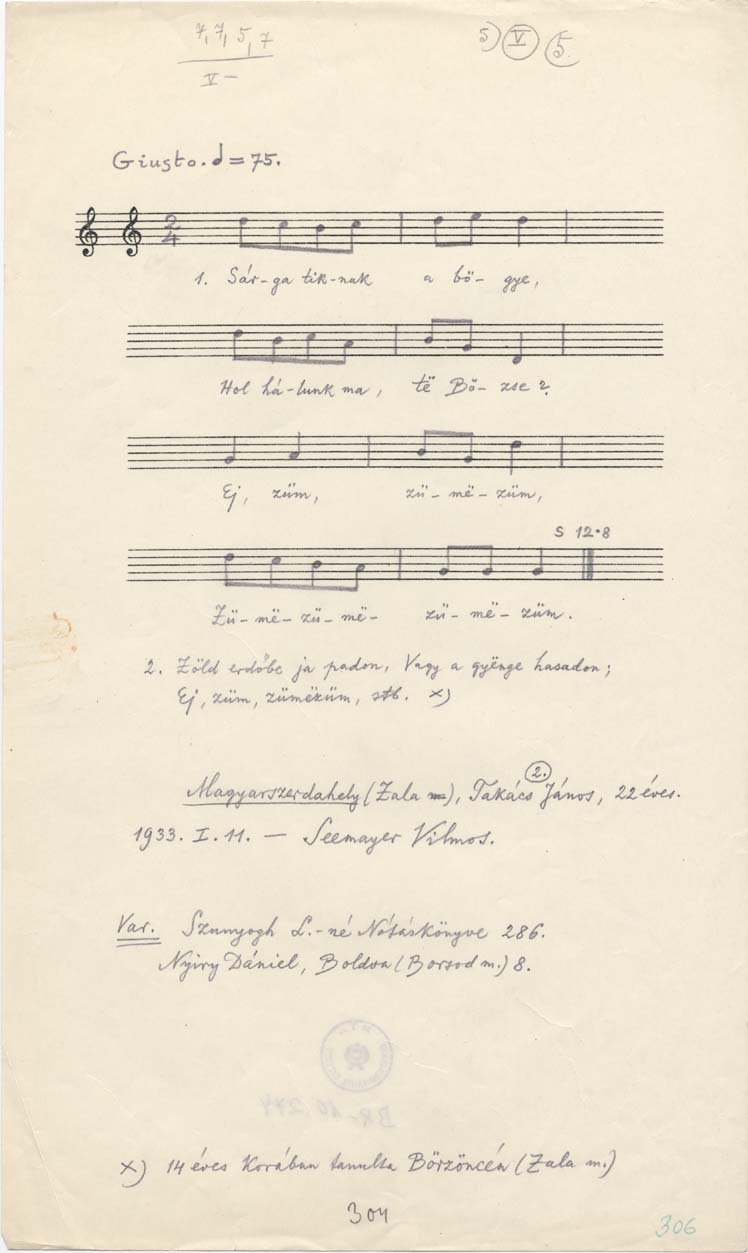 7, 7, 5, 7
V –
5) V 5.
Giusto. = 75.
2
4
1. Sár-ga tik-nak a bö- gye,
Hol há-lunk ma, të Bö- zse?
Ej, züm, zü-më-züm,
S 12•8
Zü-më-zü-më- zü-më-züm.
2. Zöld erdőbe ja padon, Vagy a gyënge hasadon;
Ej, züm, zümëzüm, stb. x)
2.
Magyarszerdahely (Zala m), Takács János, 22 éves.
1933. I. 11. — Seemayer Vilmos.
Var. Szunyogh L.-né Nótáskönyve 286.
Nyiry Dániel, Boldva (Borsod m.) 8.
x) 14 éves korában tanulta Börzöncén (Zala m.)
304
306